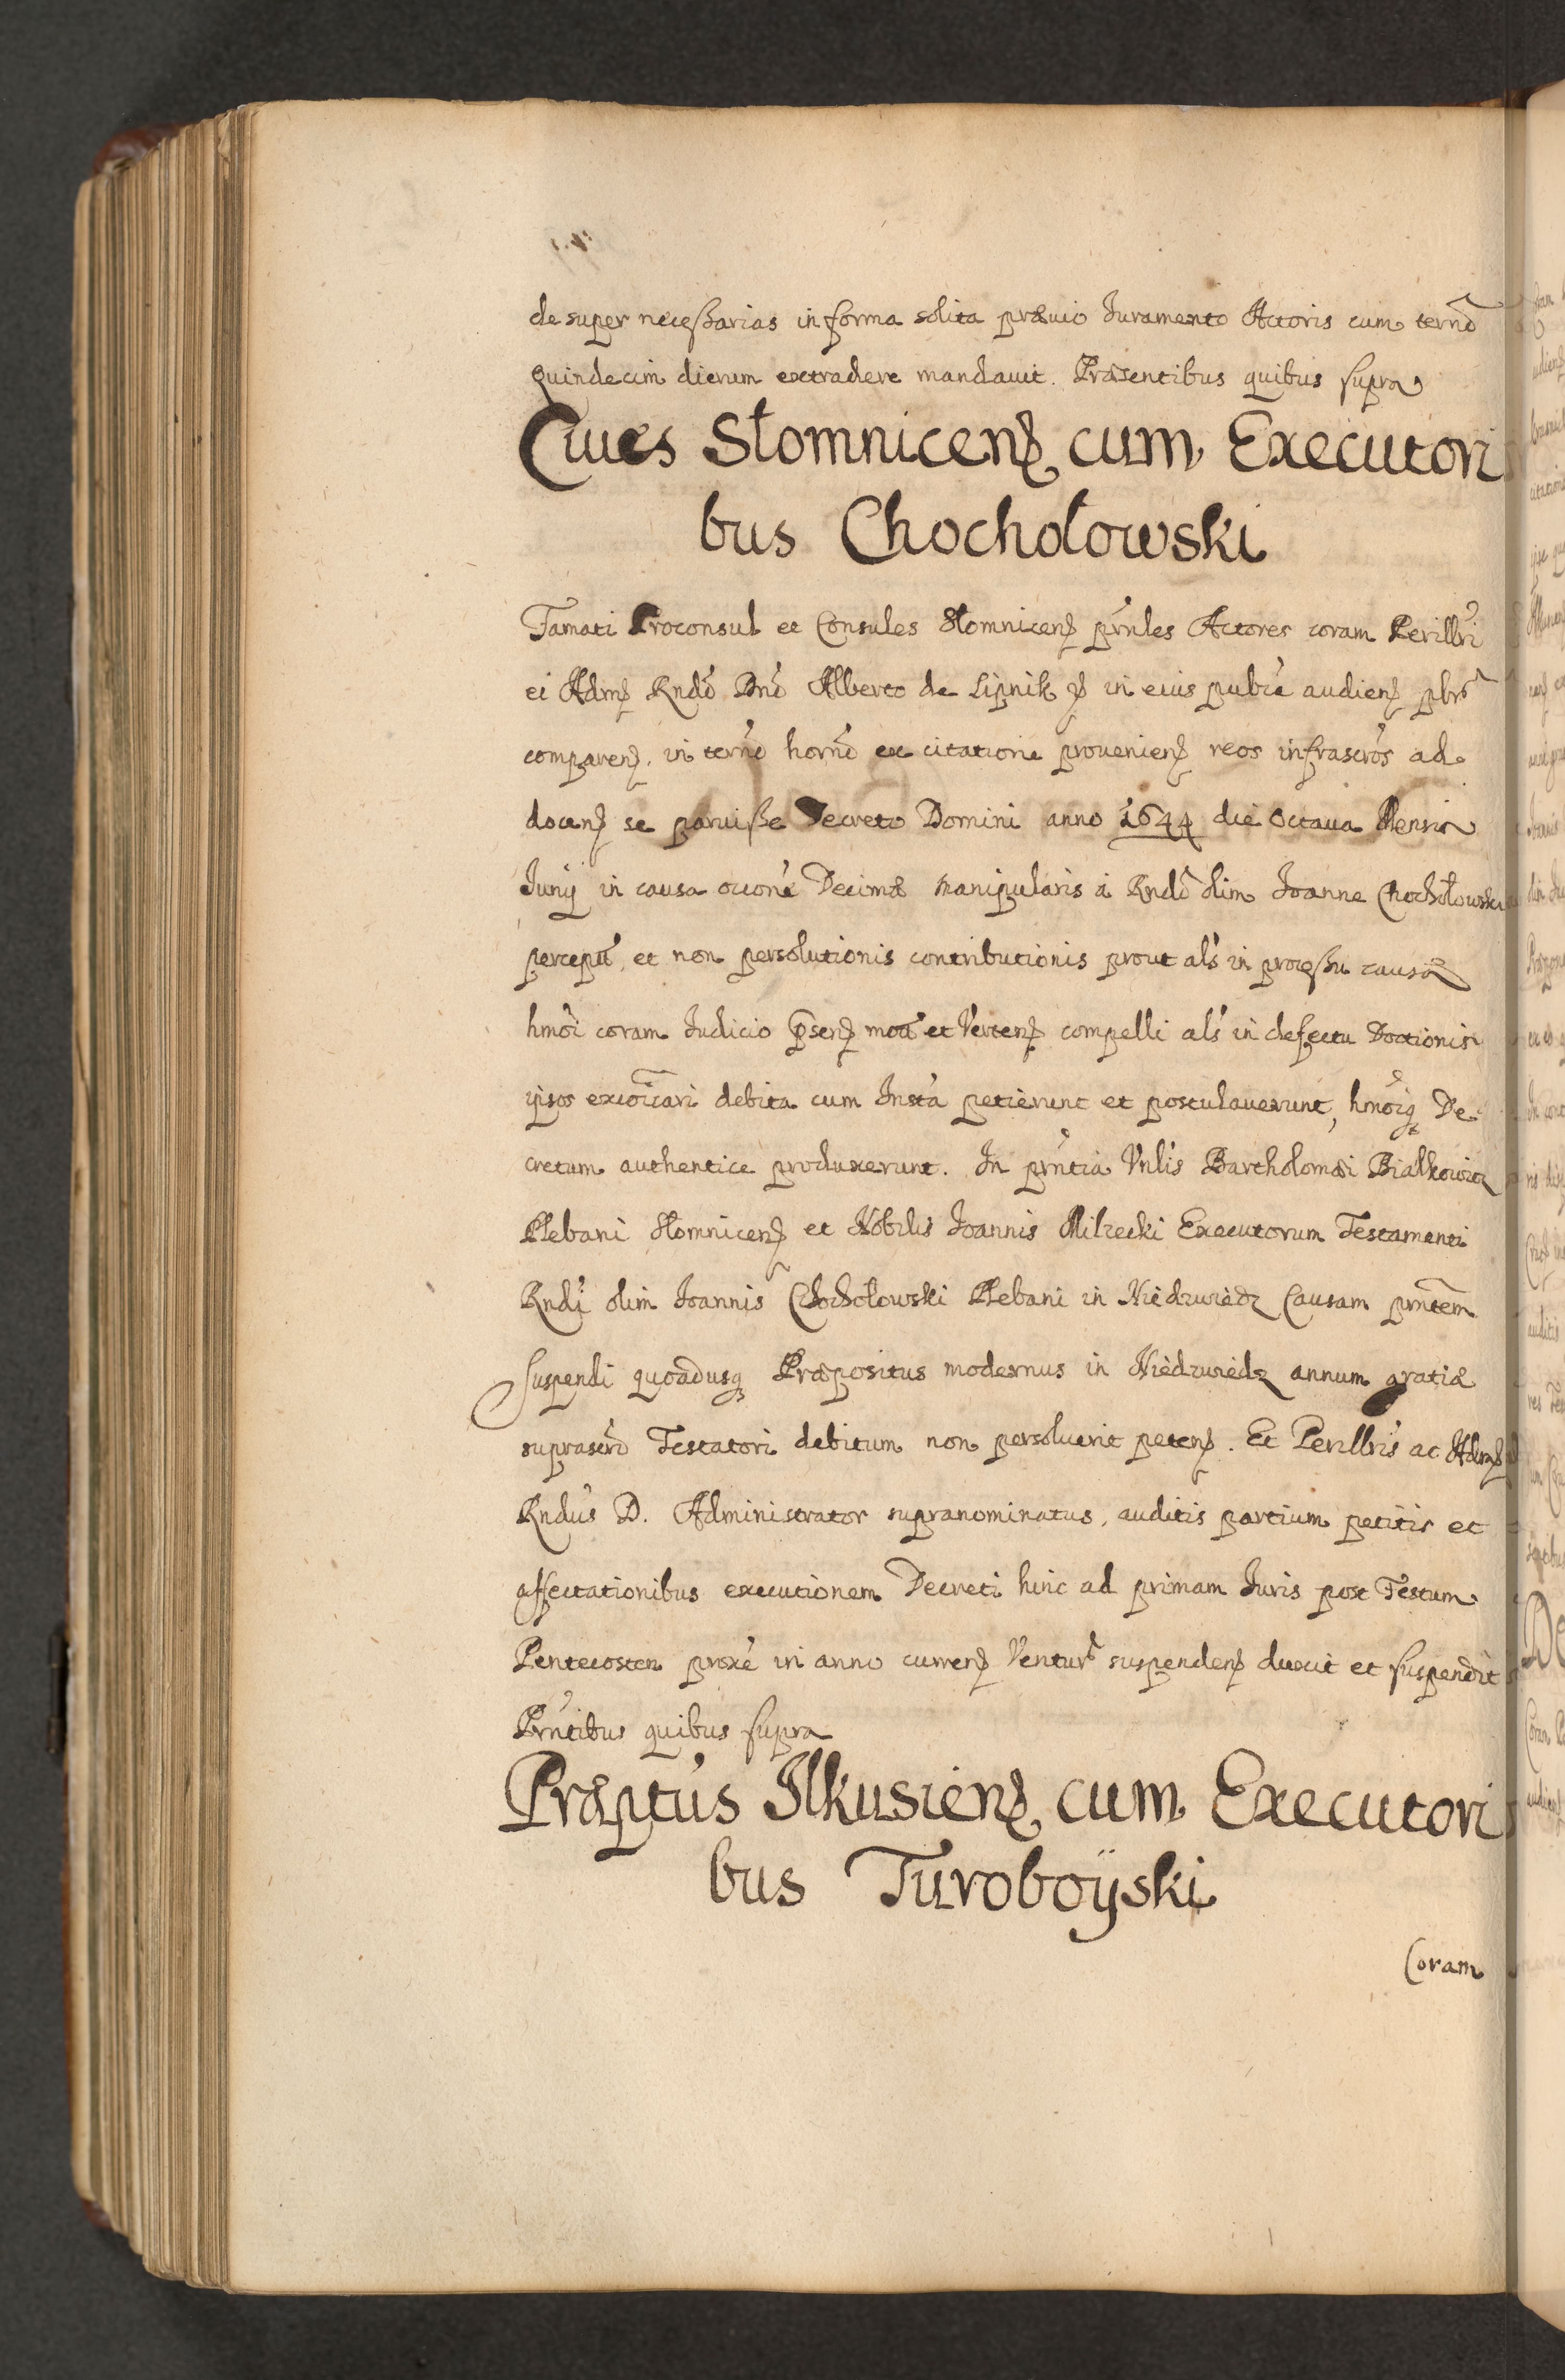 de super necessarias in forma solita præuio Iuramento Actoris cum termō
quindecim dierum extradere mandauit. Præsentibus quibus supra
Ciues Słomnicenꝭ cum Executori
bus Chochołowski
Famati Proconsul et Consules Słomnicenꝭ pn̄les Actores coram Perillri
et Admꝭ Rndo Dno Alberto de Lipnik ꝭ in eius publca audienꝭ
comparenꝭ. in termo horno ex citatione prouenienꝭ reos infrascros ad
docenꝭ se paruisse Decreto Domini anno 1644 die Octaua Mensis
Iunij in causa occone Decimæ manipularis a Rndo olim Joanne Chochołowski
percepta, et non persolutionis contributionis prout als in processu causæ
hmoi coram Iudicio p̄senꝭ mota et Vertenꝭ compelli als in defectu Doctionis
ipsos excoicari debita cum Insta petierunt et postulauerunt, hmoiq De
cretum authentice produxerunt. In pn̄tia Vnlis Bartholomæi Białkowicz
Plebani Słomnicenꝭ et Nobilis Joannis Milecki Executorum Testamenti
Rndi olim Joannis Chochołowski Plebani in Niedzwiedz Causam pn̄tem
suspendi quoadusq Præpositus modernus in Niedzwiedz annum gratiæ
suprascro Testatori debitum non persoluerit petenꝭ. Et Perillris ac Admꝭ
Rndus D. Administrator supranominatus, auditis partium petitis et
affectationibus executionem Decreti hinc ad primam Iuris post Festum
Pentecosten proxe in anno currenꝭ Ventur suspendenꝭ duxit et suspendit
Prntibus quibus supra
Præptus Ilkusienꝭ cum Executori
bus Turoboÿski
Coram